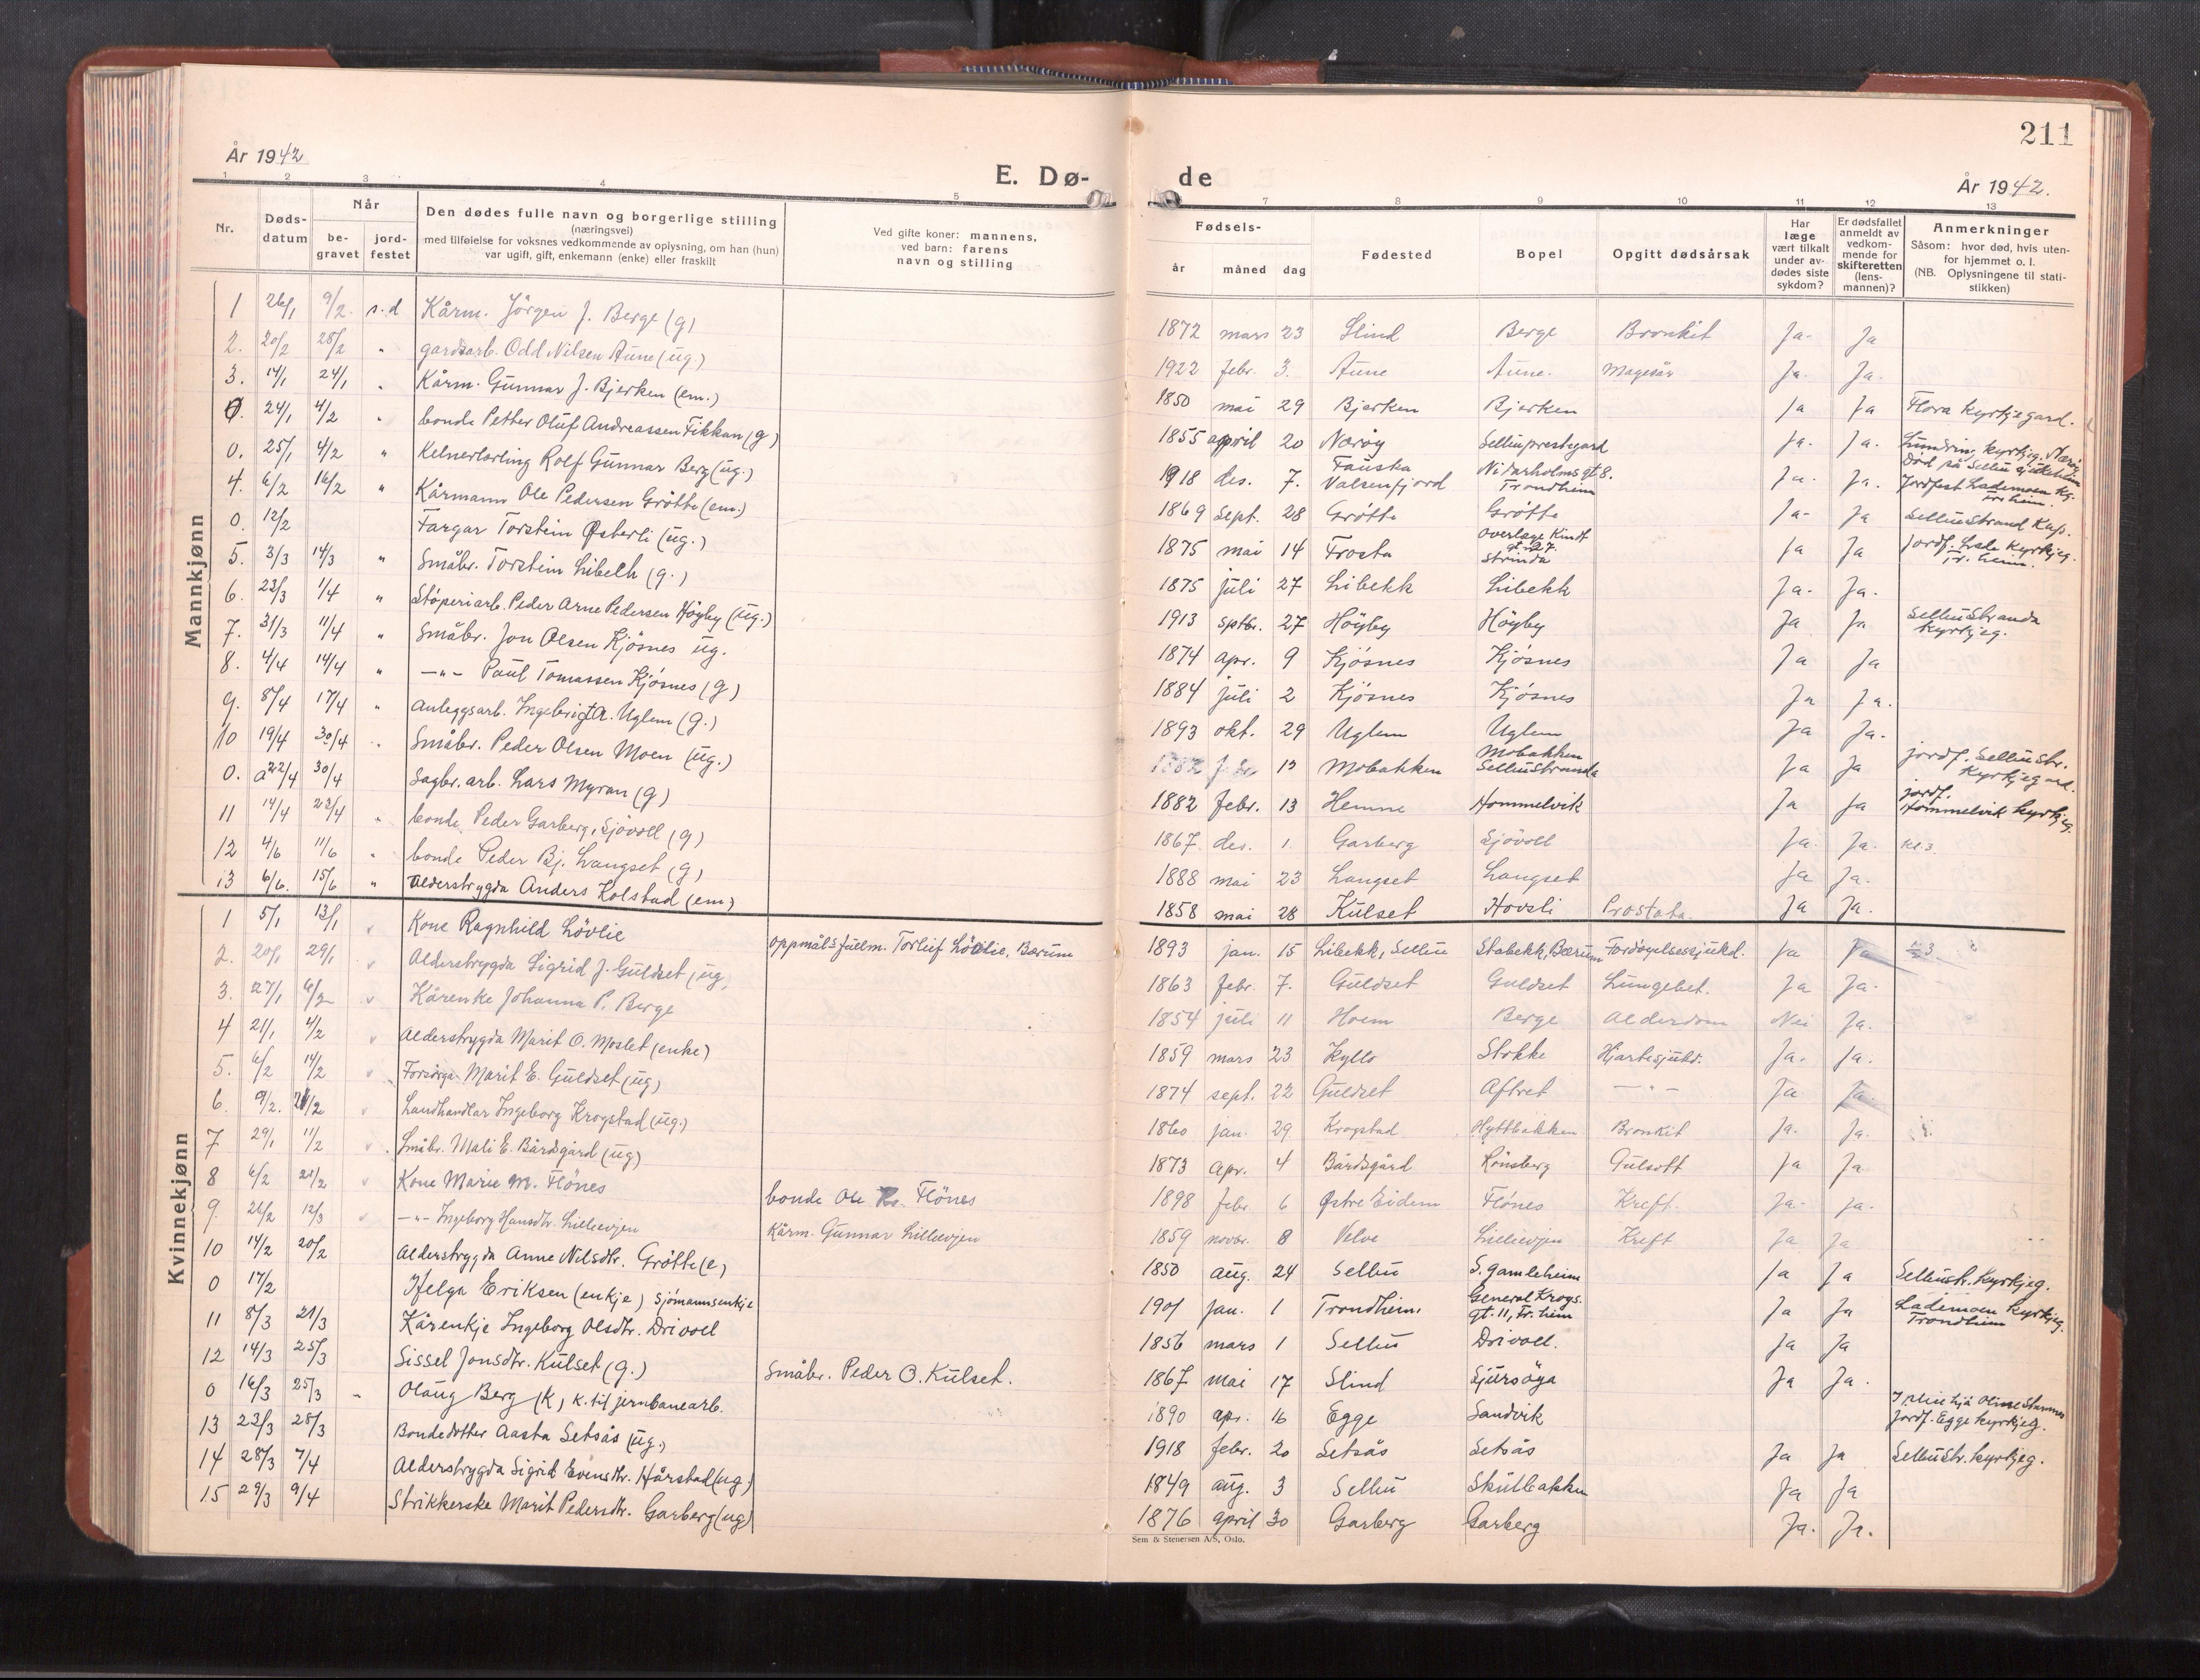 211
År 1942
E. Dø-
de
År 1942.
1 2 3 4 5 7 8 9 10 11 12 13
Nr.
Døds-
datum
Når
be-
gravet
jord-
festet
Den dødes fulle navn og borgerlige stilling
(næringsvei)
med tilføielse for voksnes vedkommende av oplysning, om han (hun)
var ugift, gift, enkemann (enke) eller fraskilt
Ved gifte koner: mannens,
ved barn: farens
navn og stilling
Fødsels-
år måned dag
Fødested
Bopel
Opgitt dødsårsak
Har
læge
vært tilkalt
under av-
dødes siste
sykdom?
Er dødsfallet
anmeldt av
vedkom-
mende for
skifteretten
(lens-
mannen)?
Anmerkninger
Såsom: hvor død, hvis uten-
for hjemmet o. l.
(NB. Oplysningene til stati-
stikken)
Mannkjønn
1 26/1 9/2. s.d Kårm. Jörgen J. Berge (g) 1872 mars 23 Slind Berge Bronkit Ja- Ja
2. 20/2 28/2 " gardsarb. Odd Nilsen Aune (ug.) 1922 febr. 3. Aune Aune. Magesår Ja. Ja.
3. 14/1 24/1 " Kårm. Gunnar J. Bjerken (em.) 1850 mai 29 Bjerken Bjerken Ja Ja Flora kyrkjegard.
0. 24/1 4/2 " bonde Petter Oluf Andreassen Fikkan (g) 1855 april 20 Nærøy Selbu prestegard Ja. Ja. Lundring kyrkjeg. Nærøy
Død på Selbu sjukeheim
0. 25/1 4/2 " Kelnerlærling Rolf Gunnar Berg (ug.) 1918 des. 7. Fauska
Valsenfjord Nidarholms gt. 8.
Trondheim Ja. Ja. Jordfest Lademoen kg.
Tr.heim.
4. 6/2 16/2 " Kårmann Ole Pedersen Grötte (em.) 1869 sept. 28 Grötte Grötte Ja- Ja Selbustrand Kap.
0. 12/2 Fargar Torstein Østerli (ug.) 1875 mai 14 Frosta overlege Kindt
gt. 27.
Strinda Ja Ja Jordf. Lade kyrkjeg.
Tr. heim.
5. 3/3 14/3 " Småbr. Torstein Libekk (g.) 1875 juli 27 Libekk Libekk Ja. Ja.
6. 23/3 1/4 " Stöperiarb. Peder Arne Pedersen Höyby (ug.) 1913 sptbr. 27 Höyby Höyby Ja Ja Selbustranda
kyrkjeg.
7. 31/3 11/4 " Småbr. Jon Olsen Kjösnes ug. 1874 apr. 9 Kjösnes Kjösnes Ja Ja
8. 4/4 14/4 " —"— Paul Tomassen Kjösnes (g) 1884 juli 2 Kjösnes Kjösnes Ja Ja.
9. 8/4 17/4 " Anleggsarb. Ingebrigt A. Uglem (g.) 1893 okt. 29 Uglem Uglem Ja Ja.
10 19/4 30/4 " Småbr. Peder Olsen Moen (ug.) 1882 febr. 13 Mobakken Mobakken
Selbustranda Ja Ja jordf. Selbustr.
kyrkjegard.
0. 22/4 30/4 Sagbr. arb. Lars Myran (g) 1882 febr. 13 Hemne Hommelvik Ja Ja jordf.
Hommelvik kyrkjeg.
11 14/4 23/4 " bonde Peder Garberg, Sjövoll (g) 1867 des. 1. Garberg Sjövoll Ja. Ja. kl. 3.
12 4/6 11/6 " bonde Peder Bj. Langset (g) 1888 mai 23 Langset Langset Ja Ja.
13 6/6. 15/6 " Alderstrygda Anders Kolstad (em) 1858 mai 28 Kulset Hovsli Prostata. Ja Ja.
Kvinnekjønn
1 5/1 13/1 Kone Ragnhild Lövlie oppmåls fullm. Torleif Lövlie, Bærum 1893 jan. 15 Libekk, Selbu Stabekk, Bærum Fordöyelsessjukd. Ja Ja 3.
2. 20/1 29/1 Alderstrygda Sigrid J. Guldset (ug, 1863 febr. 7. Guldset Guldset Lungebet. Ja Ja.
3. 27/1 6/2 Kårenke Johanna P. Berge 1854 juli 11 Hoem Berge Alderdom Nei Ja.
4 21/1 4/2 Alderstrygda Marit O. Moslet (enke) 1859 mars 23 Kyllo Stokke Hjartesjukd. Ja. Ja.
5. 6/2 14/2 Forsörga Marit E. Guldset (ug) 1874 sept. 22 Guldset Aftret —"— Ja Ja.
6. 9/2. 21/2 Landhandlar Ingeborg Krogstad (ug.) 1860 jan. 29 Krogstad Hyttbakken Bronkit Ja. Ja.
7. 29/1 11/2 Småbr. Mali E. Bårdsgård (ug) 1873 apr. 4 Bårdsgård Rönsberg Gulsott Ja Ja
8 6/2 21/2 Kone Marie M. Flönes bonde Ole Flönes 1898 febr. 6 Østre Eidem Flönes Kreft. Ja- Ja.
9. 26/2 12/3 —"— Ingeborg Hansdtr. Lillevjen Kårm. Gunnar Lillevjen 1859 novbr. 8 Velve Lillevjen Kreft Ja Ja
10 14/2 20/2 Alderstrygda Anne Nilsdtr. Grötte (e) 1850 aug. 24 Selbu S. gamleheim Ja Ja Selbustr. Kyrkjeg.
0 17/2 Helga Eriksen (enkje) sjömannsenkje 1901 jan. 1 Trondheim General Krogs.
gt. 11, Tr. heim Ja Ja Lademoen kyrkjeg.
Trondheim
11 8/3 21/3 Kårenkje Ingeborg Olsdtr. Drivoll 1856 mars 1 Selbu Drivoll. Ja Ja
12 14/3 25/3 Sissel Jonsdtr. Kulset (g.) Småbr. Peder O. Kulset. 1867 mai 17 Slind Sjursöya Ja Ja.
0 16/3 25/3 " Olaug Berg (k) k. til jernbanearb. 1890 apr. 16 Egge Sandvik
Jordf. Egge kyrkjeg.
13 23/3 28/3 Bondedotter Aasta Setsås (ug.) 1918 febr. 20 Setsås Setsås Ja Ja Selbustr. kyrkjeg.
14 28/3 7/4 Alderstrygda Sigrid Evensdtr. Hårstad (ug.) 1849 aug. 3 Selbu Skulbakken Ja Ja
15 29/3 9/4 Strikkerske Marit Pedersdtr. Garberg (ug) 1876 april 30 Garberg Garberg Ja. Ja.
Sem & Stenersen A/S, Oslo.